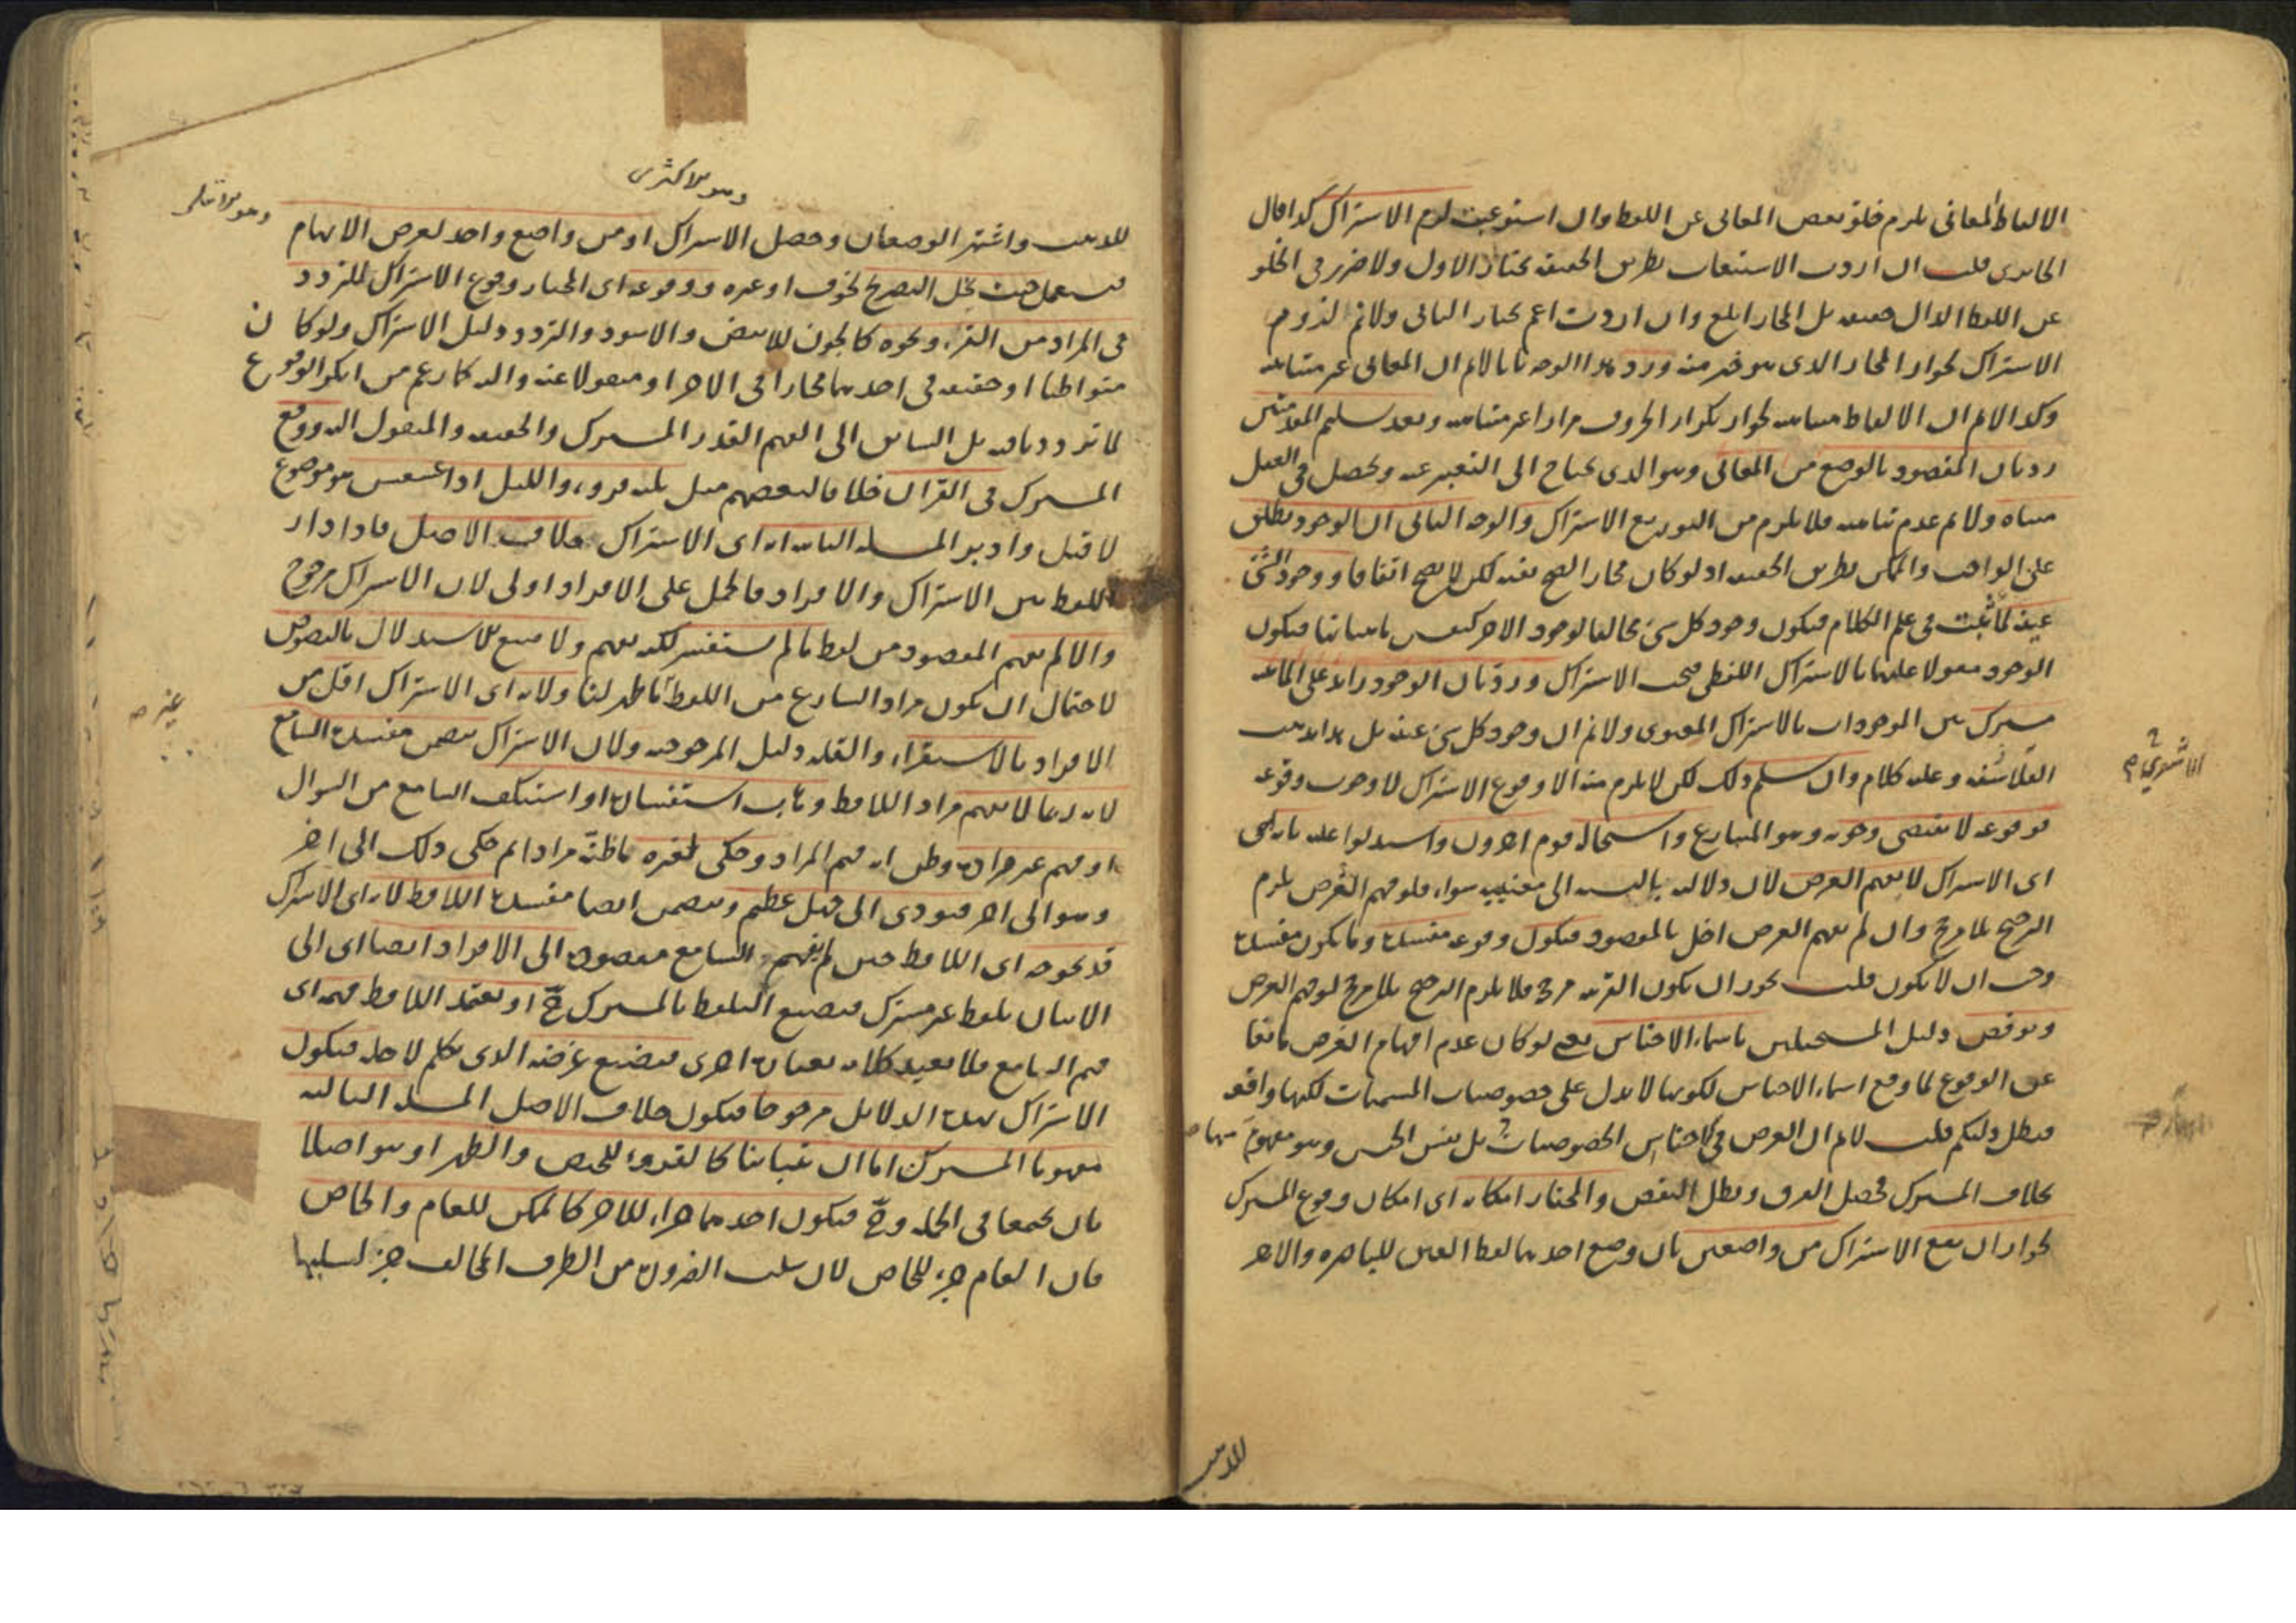 الالفاظ المعانى يلزم خلو بعض المعانى عن اللفظ وان استوعبت لزم الاشتراك كذا قال
الجاربردى قلت ان اردت الاستيعاب بطريق الحقيقة نختار الاول ولا ضرر فى الخلو
عن اللفظ الدال حقيقة بل المجاز ابلغ وان اردت اعم نختار الثانى ولانم لزوم
الاشتراك لجواز المجاز الذى هو خير منه ورد هذا الوجه بانا لانم ان المعانى غير متناهية
وكذا لانم ان الالفاظ متناهية لجواز تكرار الحروف مرارا غير متناهية وبعد تسليم المقدمتين
رد بان المقصود بالوضع من المعانى وهو الذى يحتاج الى التعبير عنه ويحصل فى العقل
متناه ولانم عدم تناهيه فلا يلزم من التوزيع الاشتراك والوجه الثانى ان الوجود يطلق
على الواجب والممكن بطريق الحقيقة اذ لو كان مجازا لصح نفيه لكن لا يصح اتفاقا ووجود الشئ
عينه لما ثبت فى علم الكلام فيكون وجود كل شئ مخالفا لوجود الاخر فيكون
الوجود مقولا عليها بالاشتراك اللفظى فيجب الاشتراك ورد بان الوجود زائد على الماهية
مشترك بين الموجودات بالاشتراك المعنوى ولانم ان وجود كل شئ عينه بل هذا مذهب
الفلاسفة وعليه كلام وان سلم ذلك لكن لا يلزم منه الا وقوع الاشتراك لا وجوب وقوعه
فوقوعه لا يقتضى وجوبه وهو المتنازع واستحال قوم اخرون واستدلوا عليه بانه
اى الاشتراك لا يفهم الغرض لان دلالته بالنسبة الى معنييه سواء فلو فهم الغرض يلزم
الترجيح بلا مرجح وان لم يفهم الغرض اخل بالمقصود فيكون وقوعه مفسدة وما يكون مفسدة
وجب ان لا يكون قلت يجوز ان يكون القرينة مرجح فلا يلزم الترجيح بلا مرجح لو فهم الغرض
ونوقض دليل المستحيلين باسماء الاجناس يعنى لو كان عدم افهام الغرض مانعا
عن الوقوع لما وقع اسماء الاجناس لكونها لا تدل على خصوصيات المسميات لكنها واقعة
فبطل دليلكم قلت لانم ان الغرض فى الاجناس الخصوصيات بل نفس الجنس وهو مفهوم منها
بخلاف المشترك فحصل الفرق وبطل النقض والمختار امكانه اى امكان وقوع المشترك
لجواز ان يقع الاشتراك من واضعين بان وضع احدهما لفظ العين للباصرة والاخر
للذهب
للذهب واشتهر الوضعان وحصل الاشتراك او من واضع واحد لغرض الابهام
وهو الاكثرى
وهو الاقلى
فيستعمل حيث يخل التصريح لخوف او غيره ووقوعه اى المختار وقوع الاشتراك للتردد
فى المراد من القرء ونحوه كالجون للابيض والاسود والتردد دليل الاشتراك ولو كان
متواطئا او حقيقة فى احدهما مجازا فى الاخر او منقولا عنه واليه كما زعم من انكر الوقوع
لما تردد بل السابق الى الفهم القدر المشترك والحقيقة والمنقول اليه ووقع
المشترك فى القران خلافا لبعضهم مثل ثلثة قروء والليل اذا عسعس هو موضوع
لاقبل وادبر المسئلة الثانية انه اى الاشتراك خلاف الاصل فاذا دار
اللفظ بين الاشتراك والافراد فالحمل على الافراد اولى لان الاشتراك مرجوح
والا لم يفهم المقصود من لفظ ما لم يستفسر لكنه يفهم ولامتنع الاستدلال بالنصوص
لاحتمال ان يكون مراد الشارع من اللفظ غير ما ظهر لنا ولانه اى الاشتراك اقل من
غيره
الافراد بالاستقراء والقلة دليل المرجوحية ولان الاشتراك يتضمن مفسدة السامع
لانه ربما لا يفهم مراد اللافظ وهاب استفساره او استنكف السامع من السوال
او فهم غير مراده وظن انه فهم المراد وحكى لغيره ما ظنه مرادا ثم حكى ذلك الى اخر
وهو الى اخر فيودى الى جهل عظيم ويتضمن ايضا مفسدة اللافظ لانه اى الاشتراك
قد يحوجه اى اللافظ حين لم يفهم السامع مقصوده الى الافراد ايضا اى الى
الاتيان بلفظ غير مشترك فيضيع التلفظ بالمشترك ح او يعتمد اللافظ فهمه اى
فهم السامع فلا يعيد كلامه بعبارة اخرى فيضيع غرضه الذى تكلم لاجله فيكون
الاشتراك بهذه الدلايل مرجوحا فيكون خلاف الاصل المسئلة الثالثة
مفهوما المشترك اما ان يتباينا كالقروء للحيض والطهر او يتواصلا
بان يجتمعا فى الجملة وح فيكون احدهما جزاء للاخر كالممكن للعام والخاص
فان العام جزء للخاص لان سلب الضرورة من الطرف المخالف جزء لسلبها